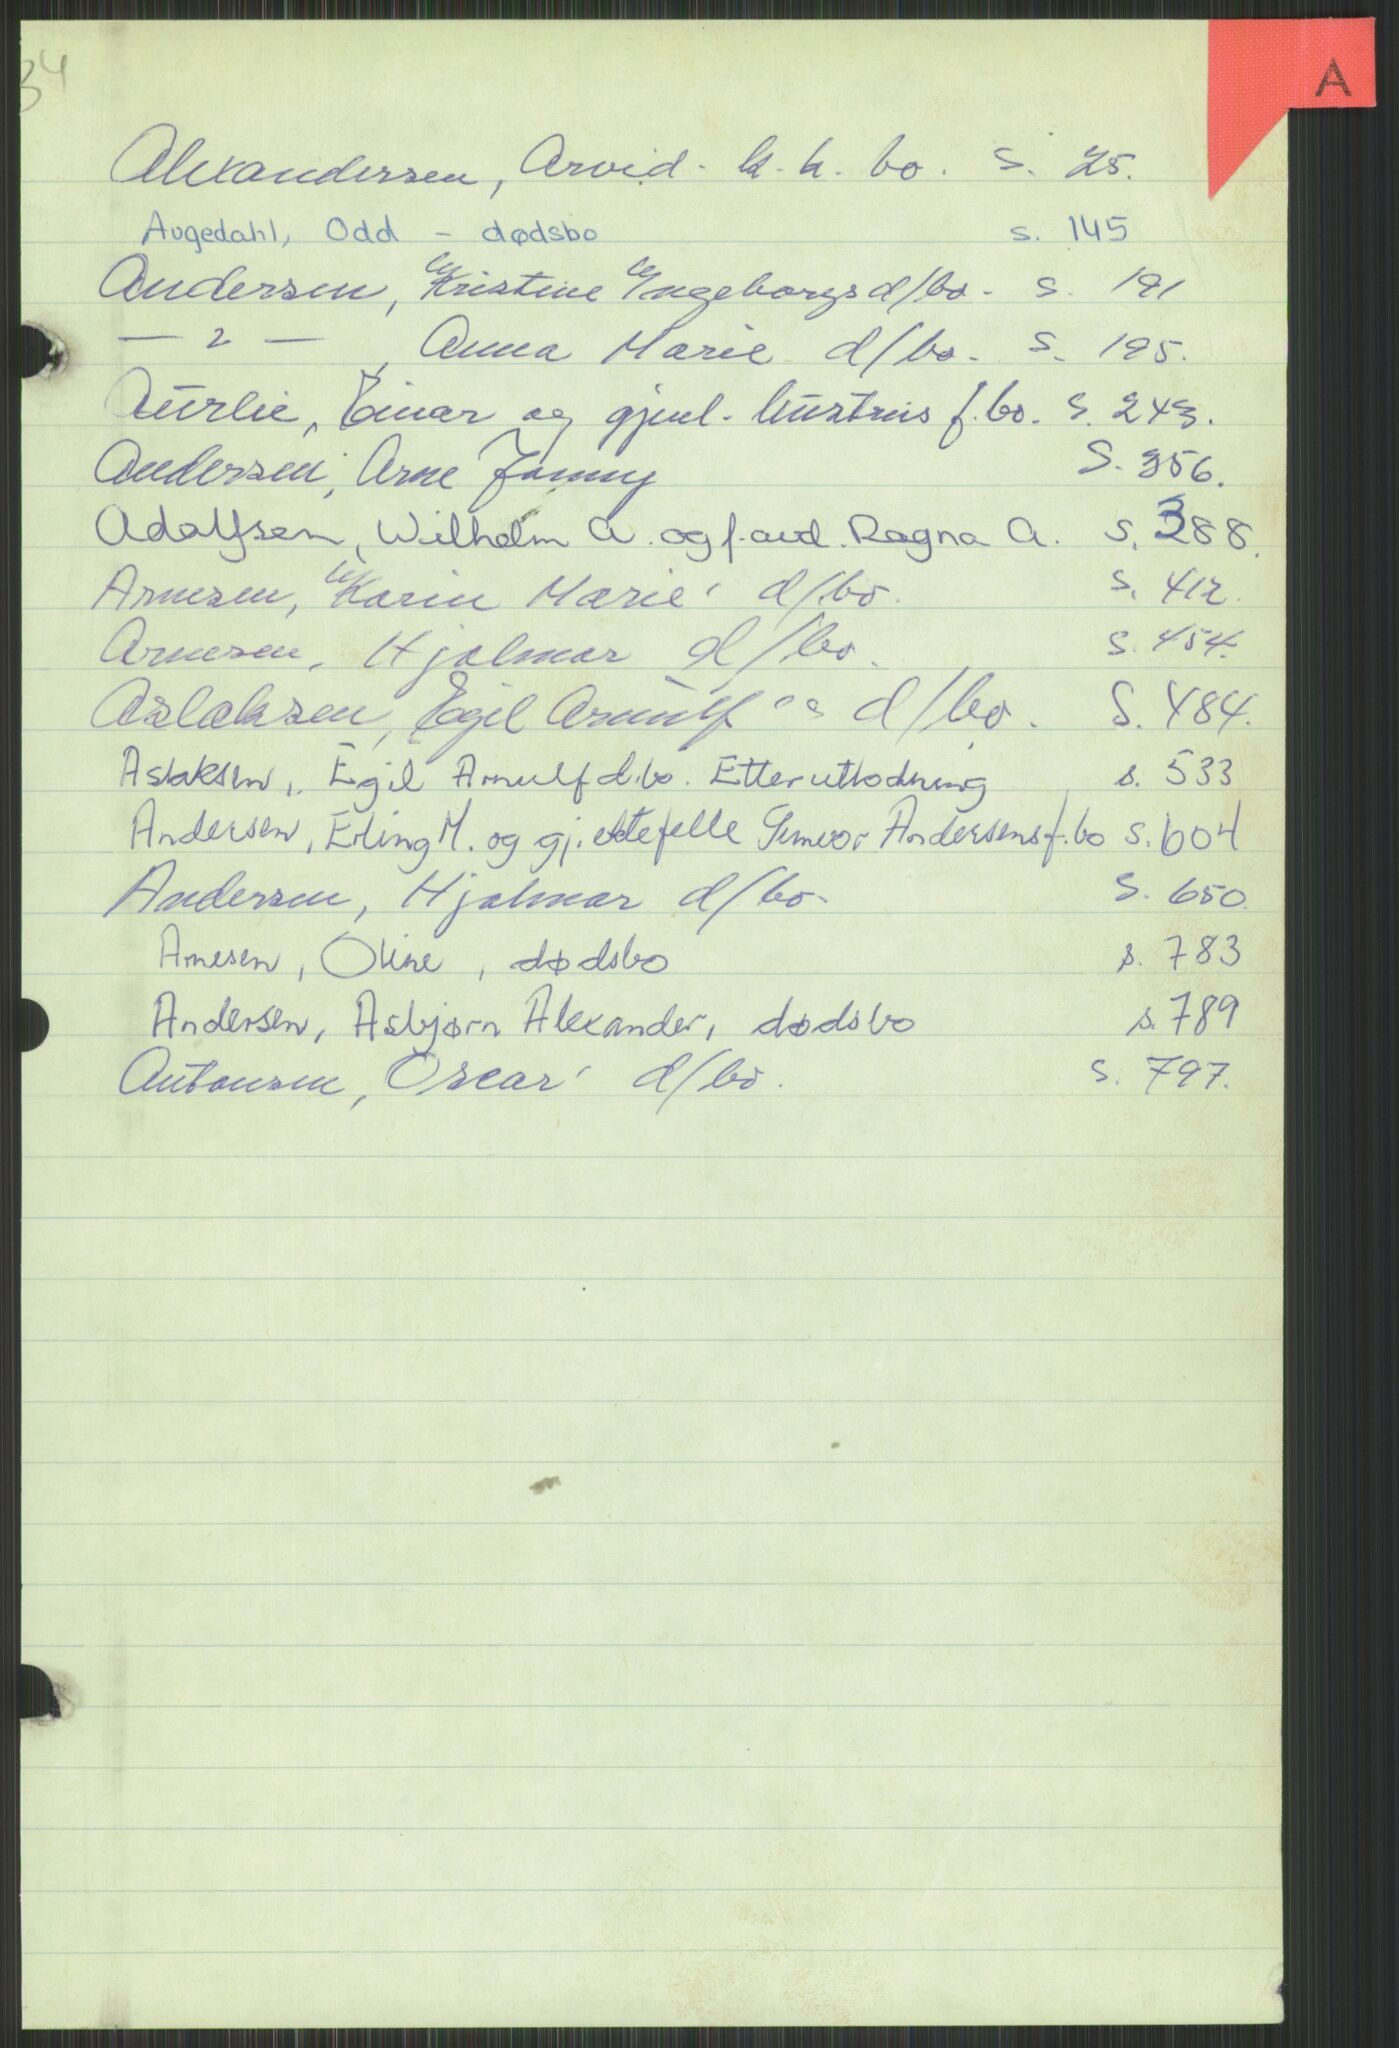 34
A
Alexandersen, Arvid - k. k. bo. s. 25.
Augedahl, Odd - dødsbo s. 145
Andersen, Kristine Ingeborgs d/bo - s. 191
— " — , Anna Marie d/bo - s. 195.
Aurlie, Einar og gjenl. hustrus f.bo. s. 243.
Andersen, Arne Jonny S. 356.
Adolfsen, Wilhelm A. og f. avd. Ragna A. s. 388.
Arnesen, Karin Marie' d/bo. s. 412.
Arnesen, Hjalmar d/bo. s. 454.
Aslaksen, Egil Arnulf's d/bo. S. 484.
Aslaksen, Egil Arnulf d.bo. Etterutlodning s. 533
Andersen, Erling M. og gj. ektefelle Andersens f.bo s. 604
Andersen, Hjalmar d/bo. S. 650.
Arnesen, Oline, dødsbo s. 783
Andersen, Asbjørn Alexander, dødsbo s. 789
Antonsen, Oscar' d/bo. s. 797.